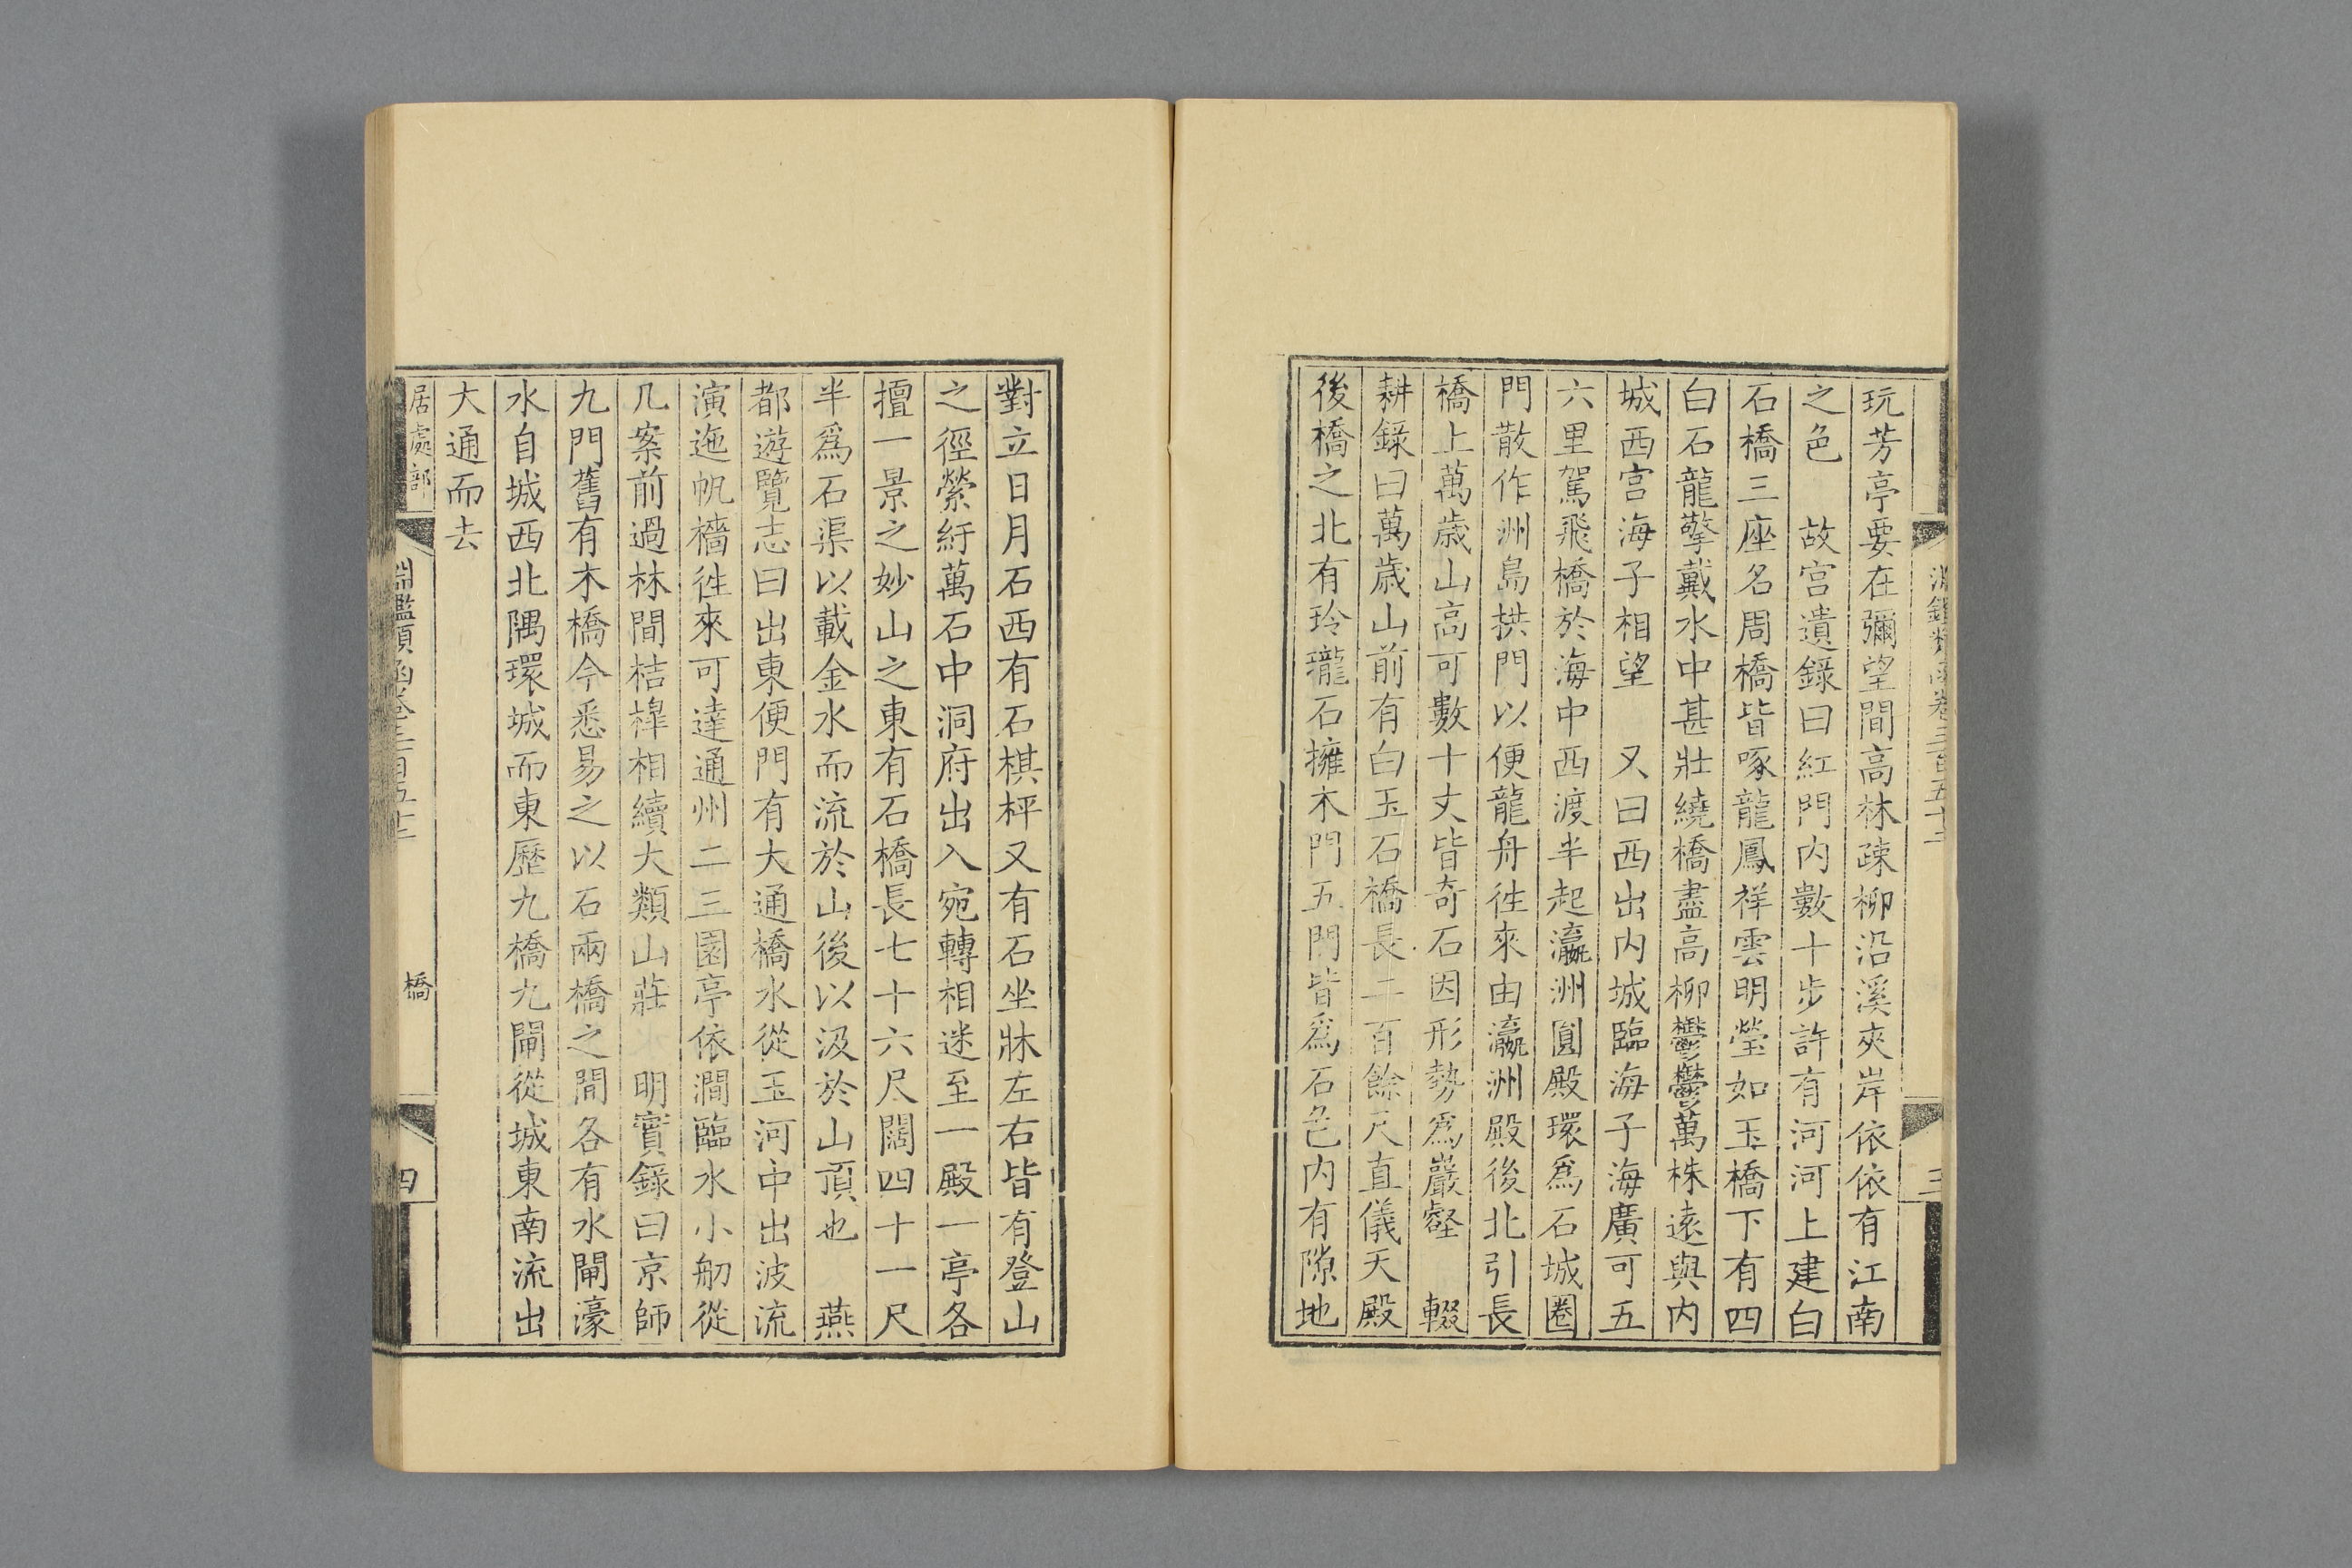 玩芳亭要在彌望間高林疎柳沿溪夾岸依依有江南
之色　故宫遺錄曰紅門内數十步許有河河上建白
石橋三座名周橋皆啄龍鳳祥雲明瑩如玉橋下有四
白石龍擎戴水中甚壯繞橋盡高柳鬱鬱萬株遠與内
城西宫海子相望　又曰西出内城臨海子海廣可五
六里駕飛橋於海中西渡半起瀛洲圓殿環爲石城圈
門散作洲島拱門以便龍舟徃來由瀛洲殿後北引長
橋上萬歲山高可數十丈皆奇石因形勢爲巖壑　輟
耕錄曰萬歲山前有白玉石橋長二百餘尺直儀天殿
後橋之北有玲瓏石擁木門五門皆爲石色内有隙地
對立日月石西有石棋枰又有石坐牀左右皆有登山
之徑縈紆萬石中洞府出入宛轉相迷至一殿一亭各
擅一景之妙山之東有石橋長七十六尺闊四十一尺
半爲石渠以載金水而流於山後以汲於山頂也　燕
都遊覽志曰出東便門有大通橋水從玉河中出波流
演迤帆檣徃來可達通州二三園亭依澗臨水小舠從
几案前過林間桔槹相續大類山莊　明實錄曰京師
九門舊有木橋今悉易之以石兩橋之間各有水閘濠
水自城西北隅環城而東歷九橋九閘從城東南流出
大通而去
居處部
淵鑑類函卷三百五十二
橋
四